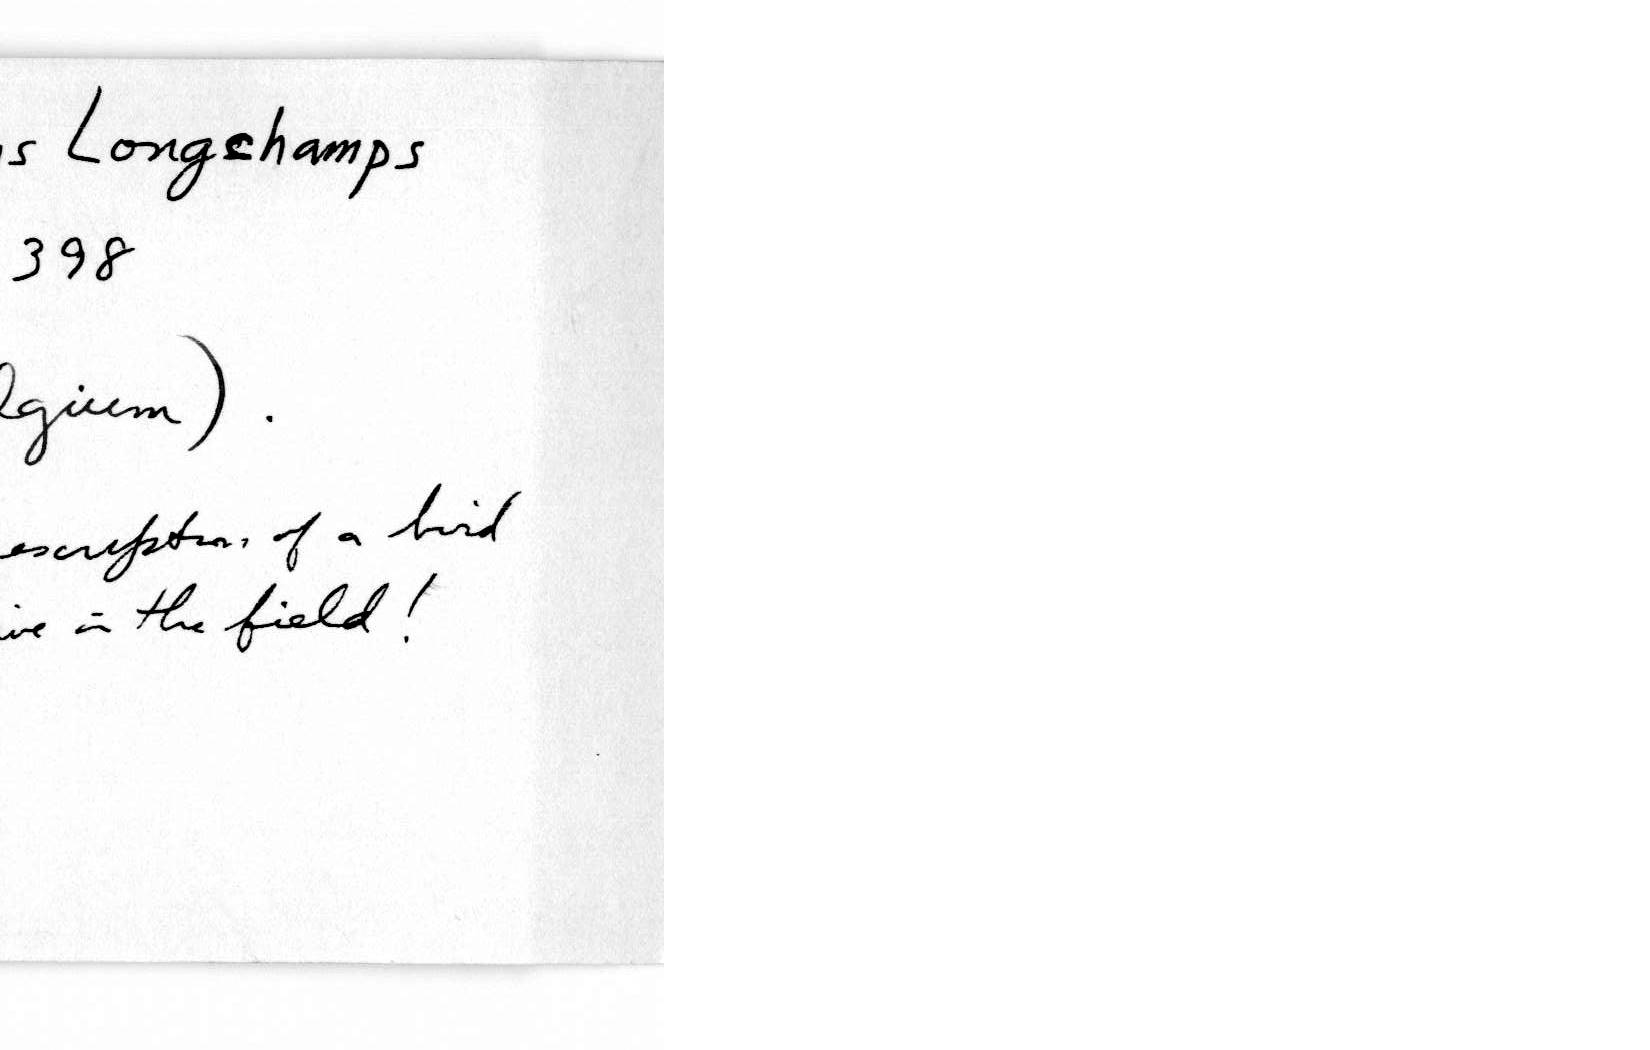 s Longchamps
398
lgium).
escription of a bird
ive in the field!